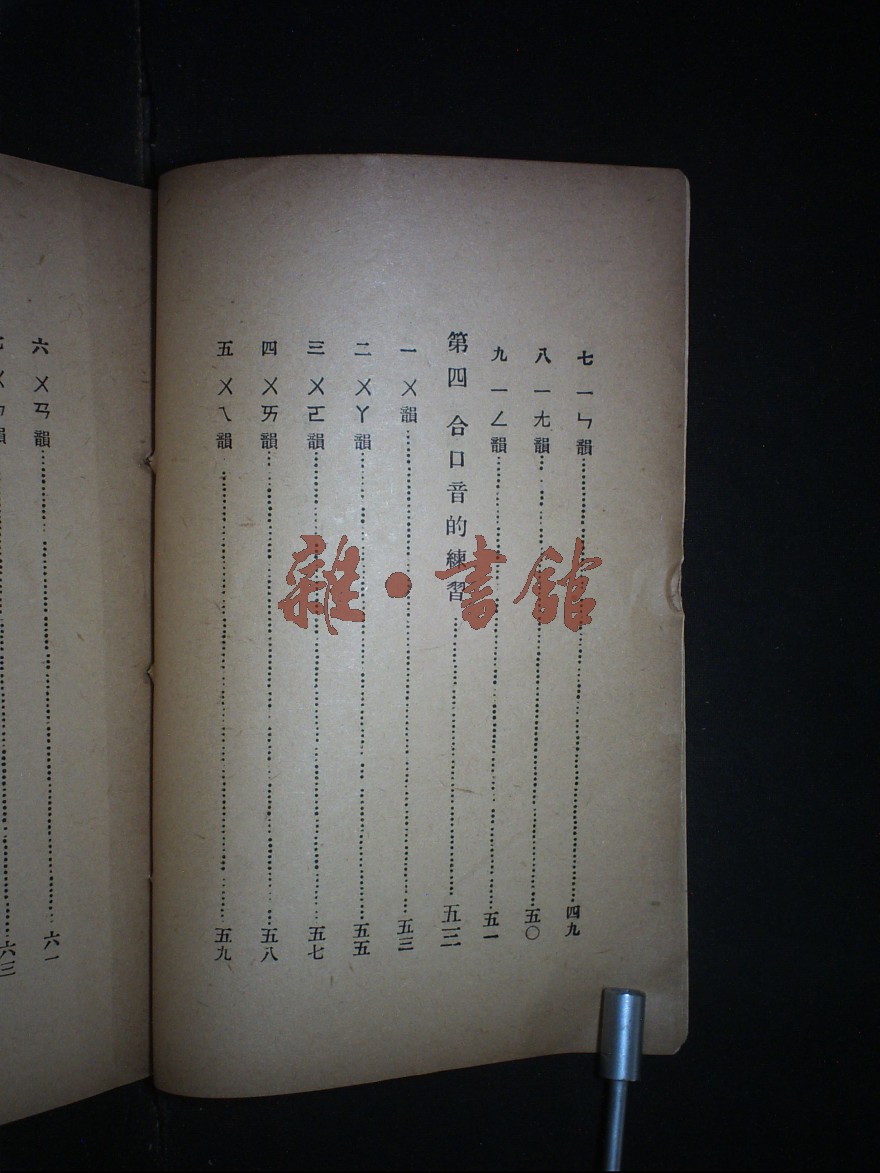 七 ㄧㄣ韻……四九
八 ㄧㄤ韻……五〇
九 ㄧㄥ韻……五一
第四 合口音的練習……五三
一 ㄨ韻……五三
二 ㄨㄚ韻……五五
三 ㄨㄛ韻……五七
四 ㄨㄞ韻……五八
五 ㄨㄟ韻……五九
六 ㄨㄢ韻……六一
七 ㄨㄣ韻……六三
雜·書館